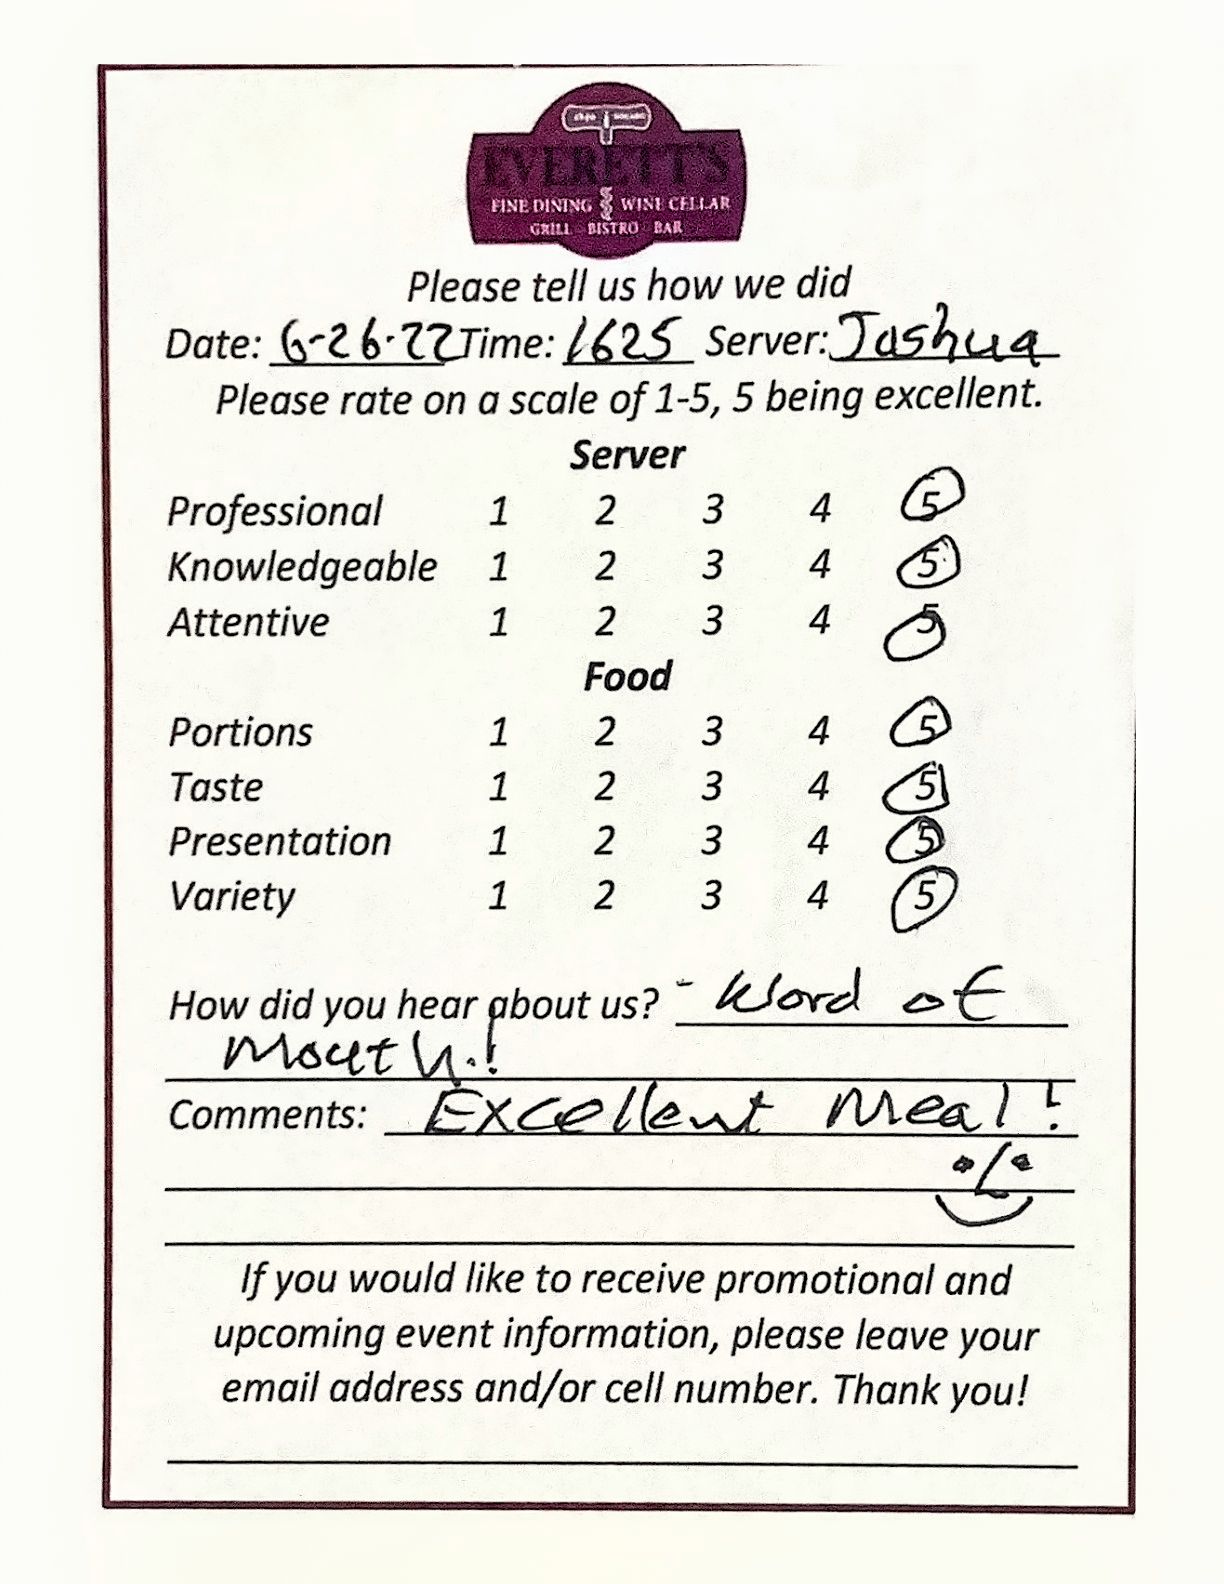 EVERETT'S
FINE DINING WINE CELLAR
GRILL BISTRO BAR
Please tell us how we did
Date: 6-26-22 Time: 1625 Server: Joshua
Please rate on a scale of 1-5, 5 being excellent.
Server
Professional 1 2 3 4 5
Knowledgeable 1 2 3 4 5
Attentive 1 2 3 4 5
Food
Portions 1 2 3 4 5
Taste 1 2 3 4 5
Presentation 1 2 3 4 5
Variety 1 2 3 4 5
How did you hear about us? - Word of
Mouth.!
Comments: Excellent Meal!
If you would like to receive promotional and
upcoming event information, please leave your
email address and/or cell number. Thank you!